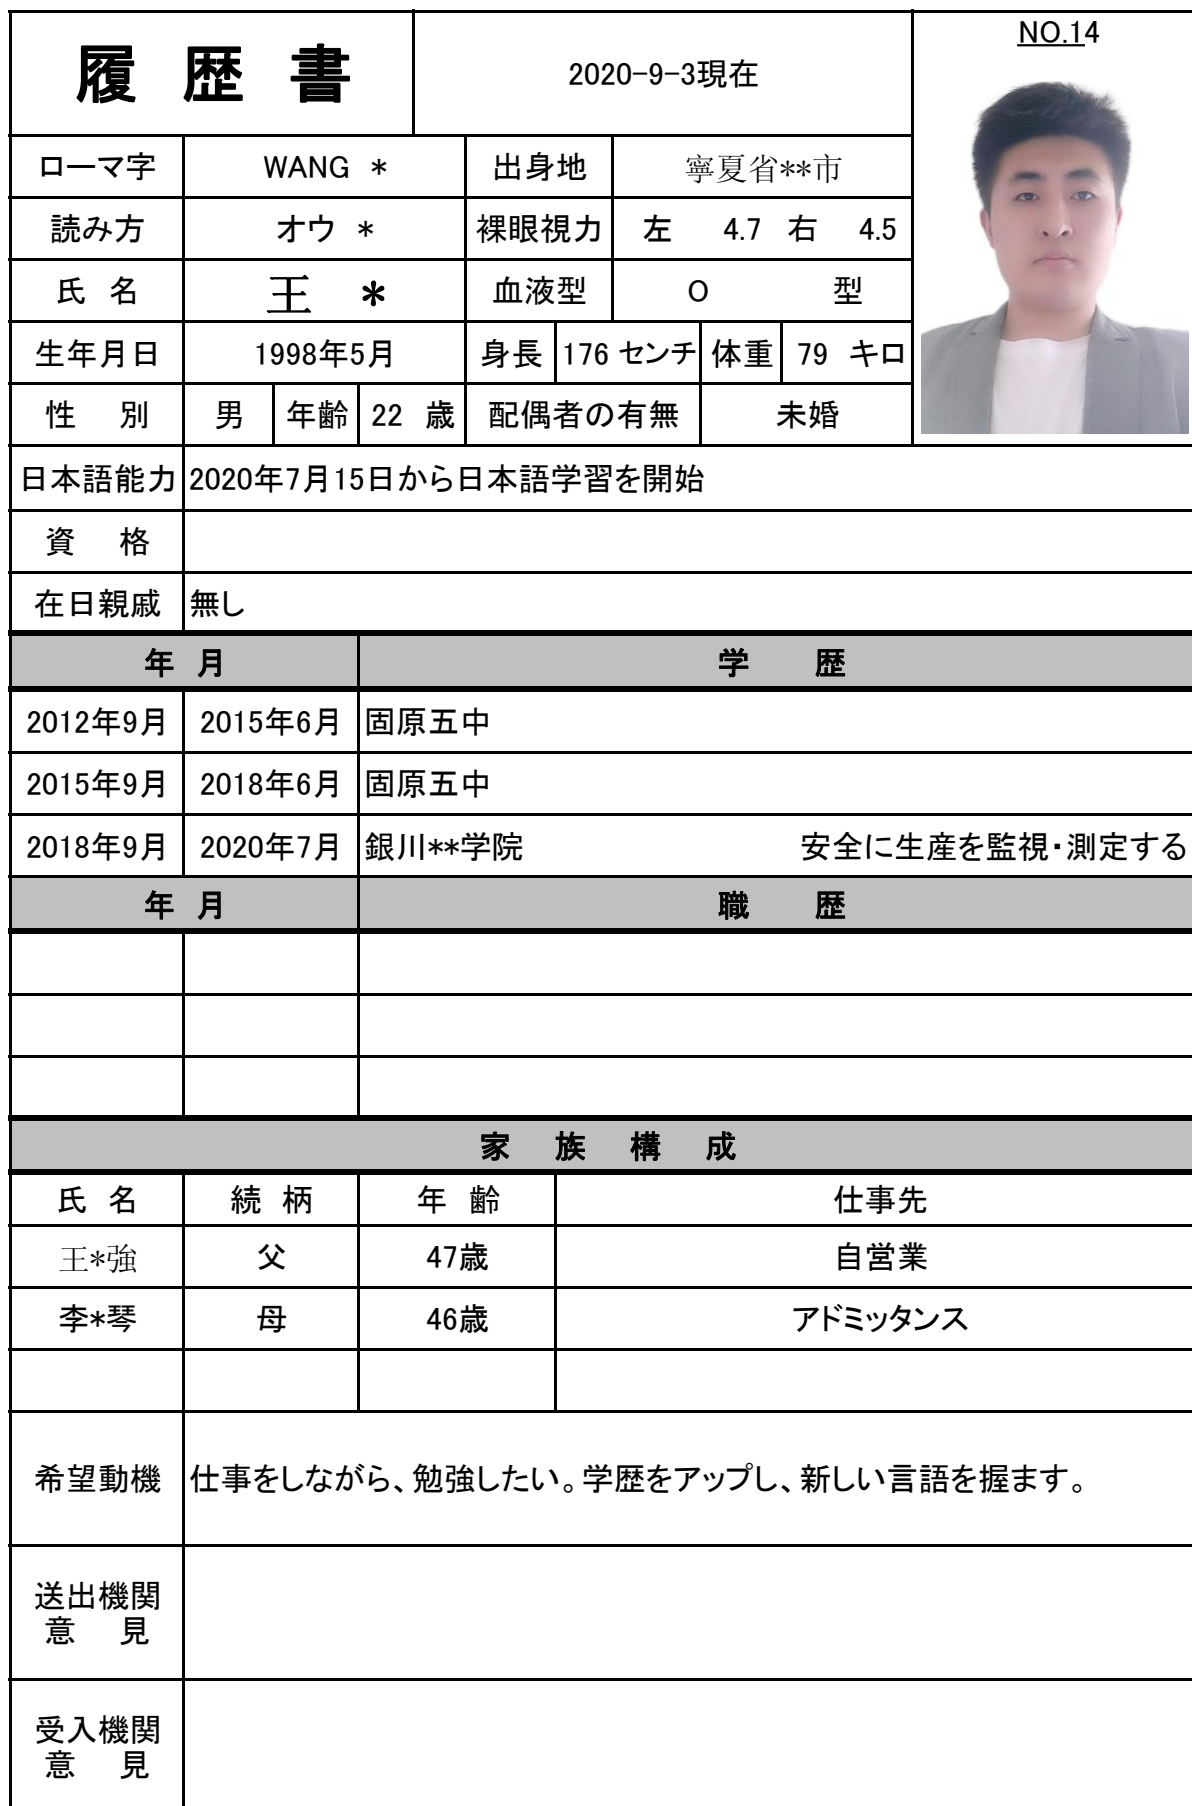 履 歴 書 2020-9-3現在 NO.14
ローマ字 WANG * 出身地 寧夏省**市
読み方 オウ * 裸眼視力 左 4.7 右 4.5
氏 名 王 * 血液型 O 型
生年月日 1998年5月 身長 176 センチ 体重 79 キロ
性 別 男 年齢 22 歳 配偶者の有無 未婚
日本語能力 2020年7月15日から日本語学習を開始
資 格
在日親戚 無し
年 月 学 歴
2012年9月 2015年6月 固原五中
2015年9月 2018年6月 固原五中
2018年9月 2020年7月 銀川**学院 安全に生産を監視・測定する
年 月 職 歴
家 族 構 成
氏 名 続 柄 年 齢 仕事先
王*強 父 47歳 自営業
李*琴 母 46歳 アドミッタンス
希望動機 仕事をしながら、勉強したい。学歴をアップし、新しい言語を握ます。
送出機関
意 見
受入機関
意 見